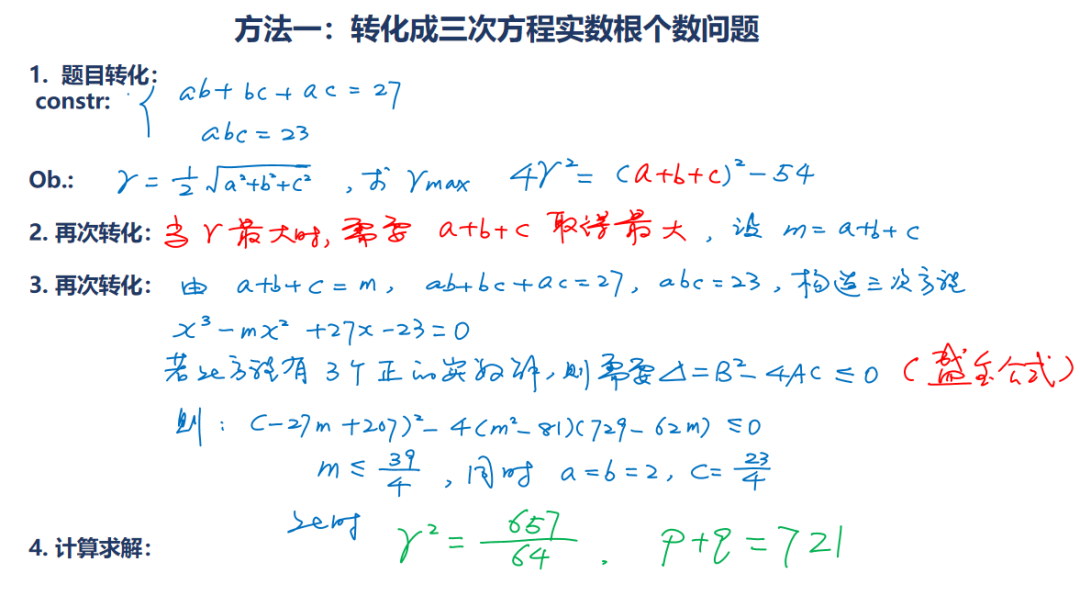 方法一：转化成三次方程实数根个数问题
1. 题目转化：
constr: { ab + bc + ac = 27
abc = 23
Ob.: r = 1/2 √(a²+b²+c²) , 求 r max 4r² = (a+b+c)² - 54
2. 再次转化：当 r 最大时, 需要 a+b+c 取得最大 , 设 m = a+b+c
3. 再次转化： 由 a+b+c = m, ab+bc+ac = 27, abc = 23, 构造三次方程
x³ - mx² + 27x - 23 = 0
若此方程有 3个正的实数解, 则需要 Δ = B² - 4AC ≤ 0 (盛金公式)
则: (-27m + 207)² - 4(m² - 81)(729 - 62m) ≤ 0
m ≤ 39/4 , 同时 a = b = 2, c = 23/4
此时 r² = 657/64 . p+q = 721
4. 计算求解：